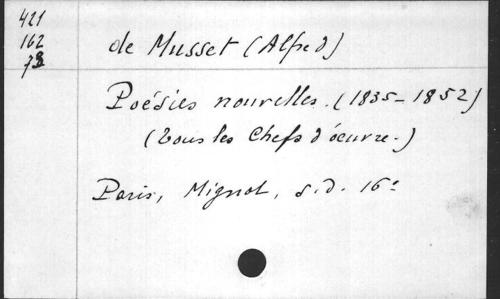 421
162
73
de Musset (Alfred)
Poésies nouvelles. (1835-1852)
(Tous les Chefs d'œuvre.)
Paris, Mignot, s.d. 16º